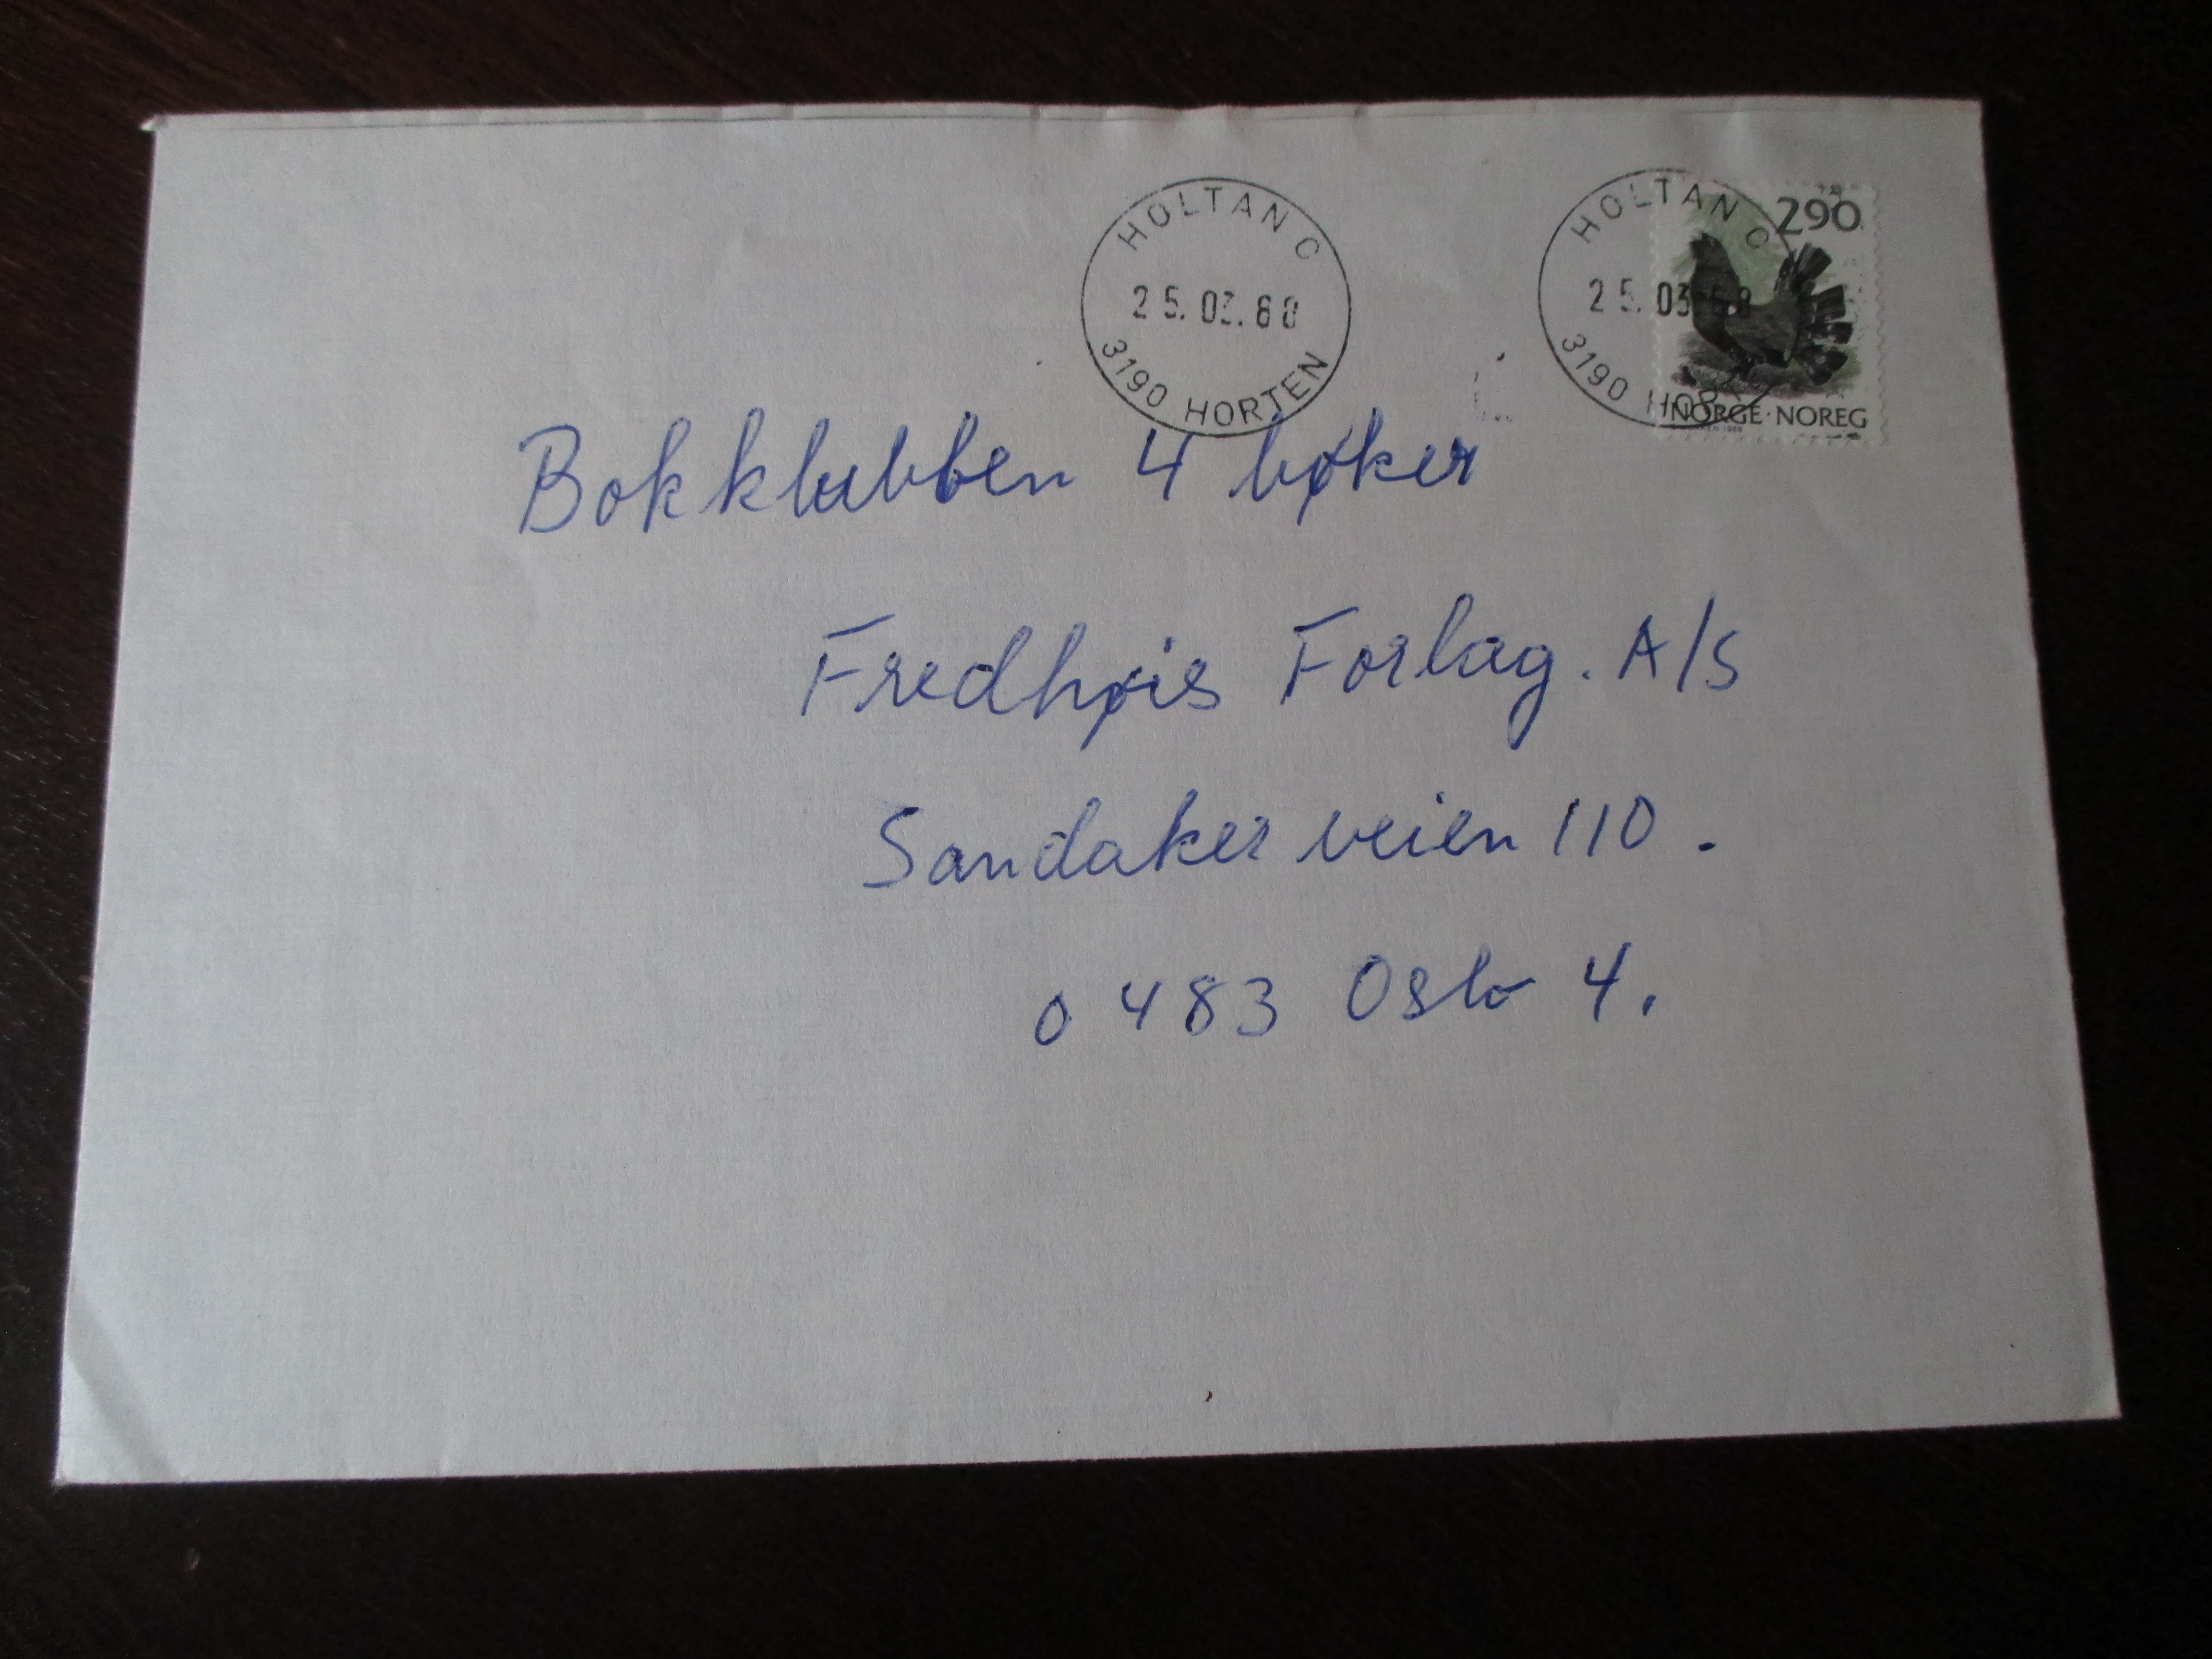 HOLTAN C
25.03.88
3190 HORTEN
HOLTAN C
25.03.88
3190 HORTEN
290
NORGE·NOREG
Bokklubben 4 bøker
Fredhøis Forlag. A/S
Sandaker veien 110.
0483 Oslo 4.